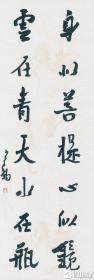 身似菩提心似鏡
雲在青天水在瓶